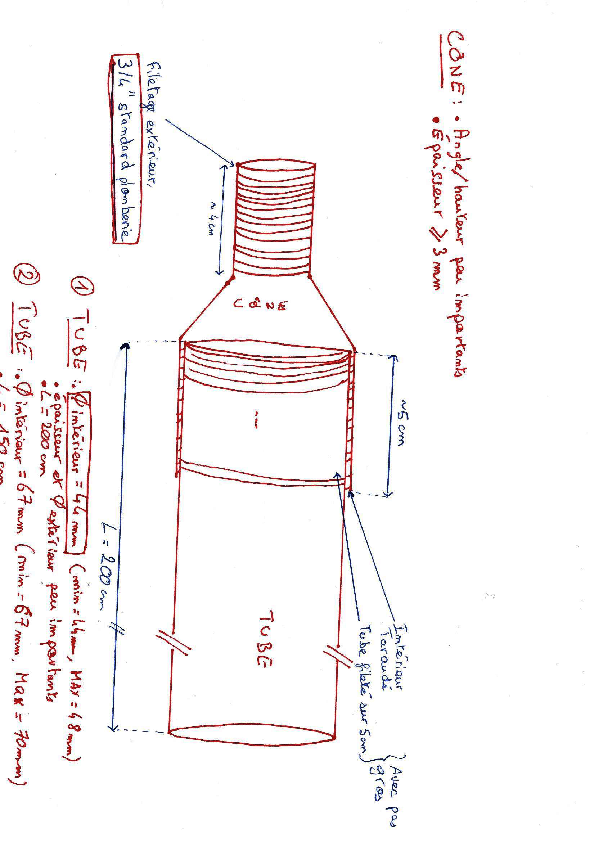 CÔNE : • Angle/hauteur peu importants
• Épaisseur ⩾ 3 mm
~5 cm
Intérieur
Taraudé
Tube fileté sur 5cm
} Avec pas
gros
CÔNE
TUBE
~ 4 cm
filetage extérieur,
3/4" standard plomberie
L = 200 cm
① TUBE : • Ø intérieur = 44 mm (min = 44mm, MAX = 48 mm)
• épaisseur et Ø extérieur peu importants
• L = 200 cm
② TUBE : • Ø intérieur = 67 mm (min = 67 mm, Max = 70mm)
• L = 150 cm